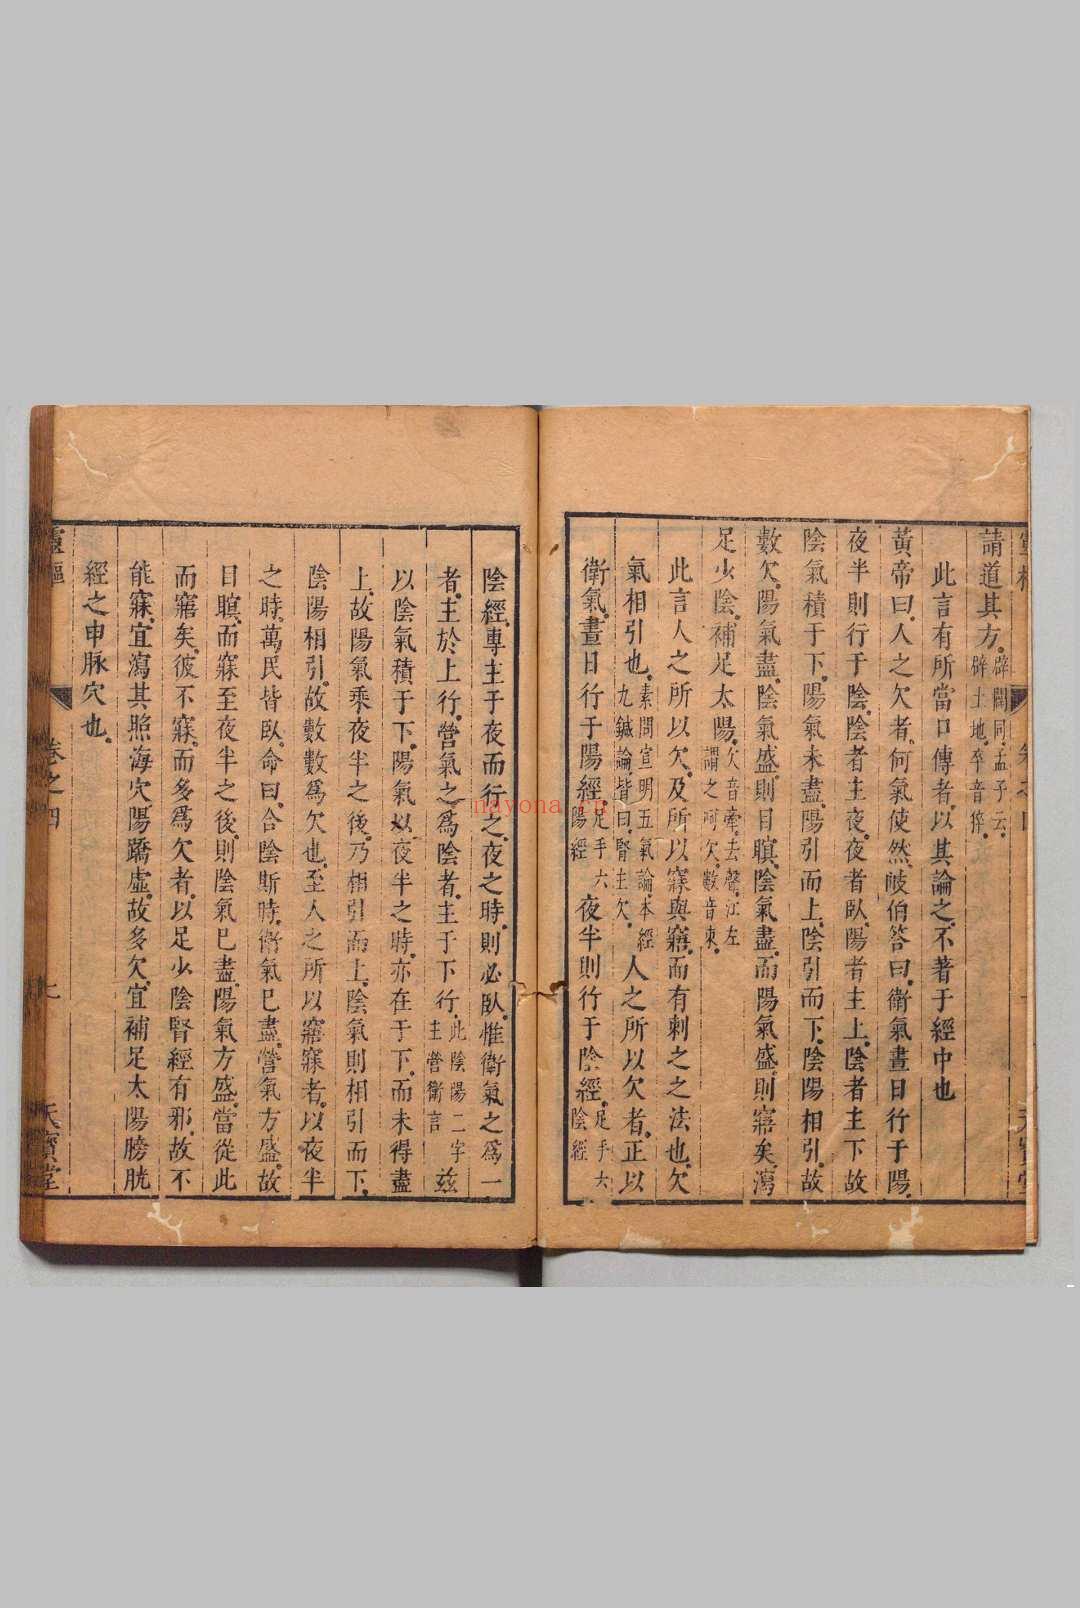 請道其方。辟闢同。孟子云。辟土地。卒音猝。
此言有所當口傳者。以其論之。不著于經中也
黃帝曰。人之欠者。何氣使然。岐伯答曰。衛氣晝日行于陽。
夜半則行于陰。陰者主夜。夜者臥。陽者主上。陰者主下。故
陰氣積于下。陽氣未盡。陽引而上。陰引而下。陰陽相引。故
數欠。陽氣盡。陰氣盛。則目瞑。陰氣盡。而陽氣盛。則寤矣。瀉
足少陰。補足太陽。欠音牽。去聲。江左謂之呵欠。數音束。
此言人之所以欠。及所以寐與寤。而有刺之之法也。欠
氣相引也。素問宣明五氣論。本經九鍼論。皆曰。腎主欠。人之所以欠者。正以
衛氣。晝日行于陽經。足手六陽經夜半則行于陰經。足手六陰經
陰經。專主于夜而行之。夜之時。則必臥。惟衛氣之爲一
者。主於上行。營氣之爲陰者。主于下行。此陰陽二字主營衛言茲
以陰氣積于下。陽氣以夜半之時。亦在于下。而未得盡
上。故陽氣乘夜半之後。乃相引而上。陰氣則相引而下。
陰陽相引。故數數爲欠也。至人之所以寤寐者。以夜半
之時。萬民皆臥。命曰。合陰斯時。衛氣已盡。營氣方盛。故
目瞑。而寐至夜半之後。則陰氣已盡。陽氣方盛。當從此
而寤矣。彼不寐。而多爲欠者。以足少陰腎經有邪。故不
能寐。宜瀉其照海穴。陽蹻虛。故多欠。宜補足太陽膀胱
經之申脉穴也。
靈樞
卷之四
七
天寶堂
nayona.cn